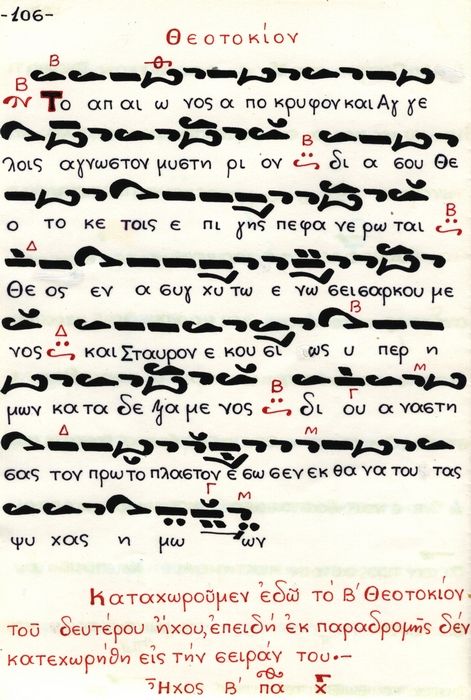 -106-
Θεοτοκίον
Το απ αι ω νος α πο κρυφον και Αγ γε
λοις αγνωστον μυστη ρι ον δι α σου Θε
ο το κε τοις ε πι γης πεφα νε ρω ται
Θε ος εν α συγ χυ τω ε νω σει σαρκου με
νος και Σταυρον ε κου σι ως υ περ η
μων κα τα δε ξα με νος δι ου α ναστη
σας τον πρωτο πλαστον ε σω σεν εκ θα να του τας
ψυ χας η μω ων
Καταχωροῦμεν ἐδῶ τό Β΄ Θεοτοκίον
τοῦ δευτέρου ἤχου, ἐπειδή ἐκ παραδρομῆς δέν
κατεχωρήθη εἰς τήν σειράν του.—
Ἦχος Β΄ πα